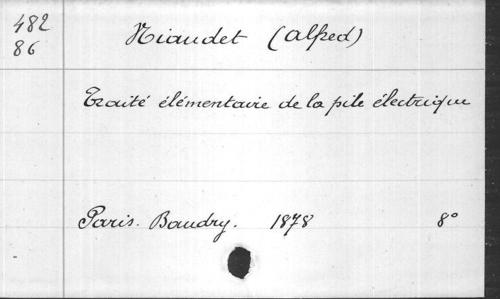 482
86
Niaudet (Alfred)
Traité élémentaire de la pile électrique
Paris. Baudry. 1878 8°